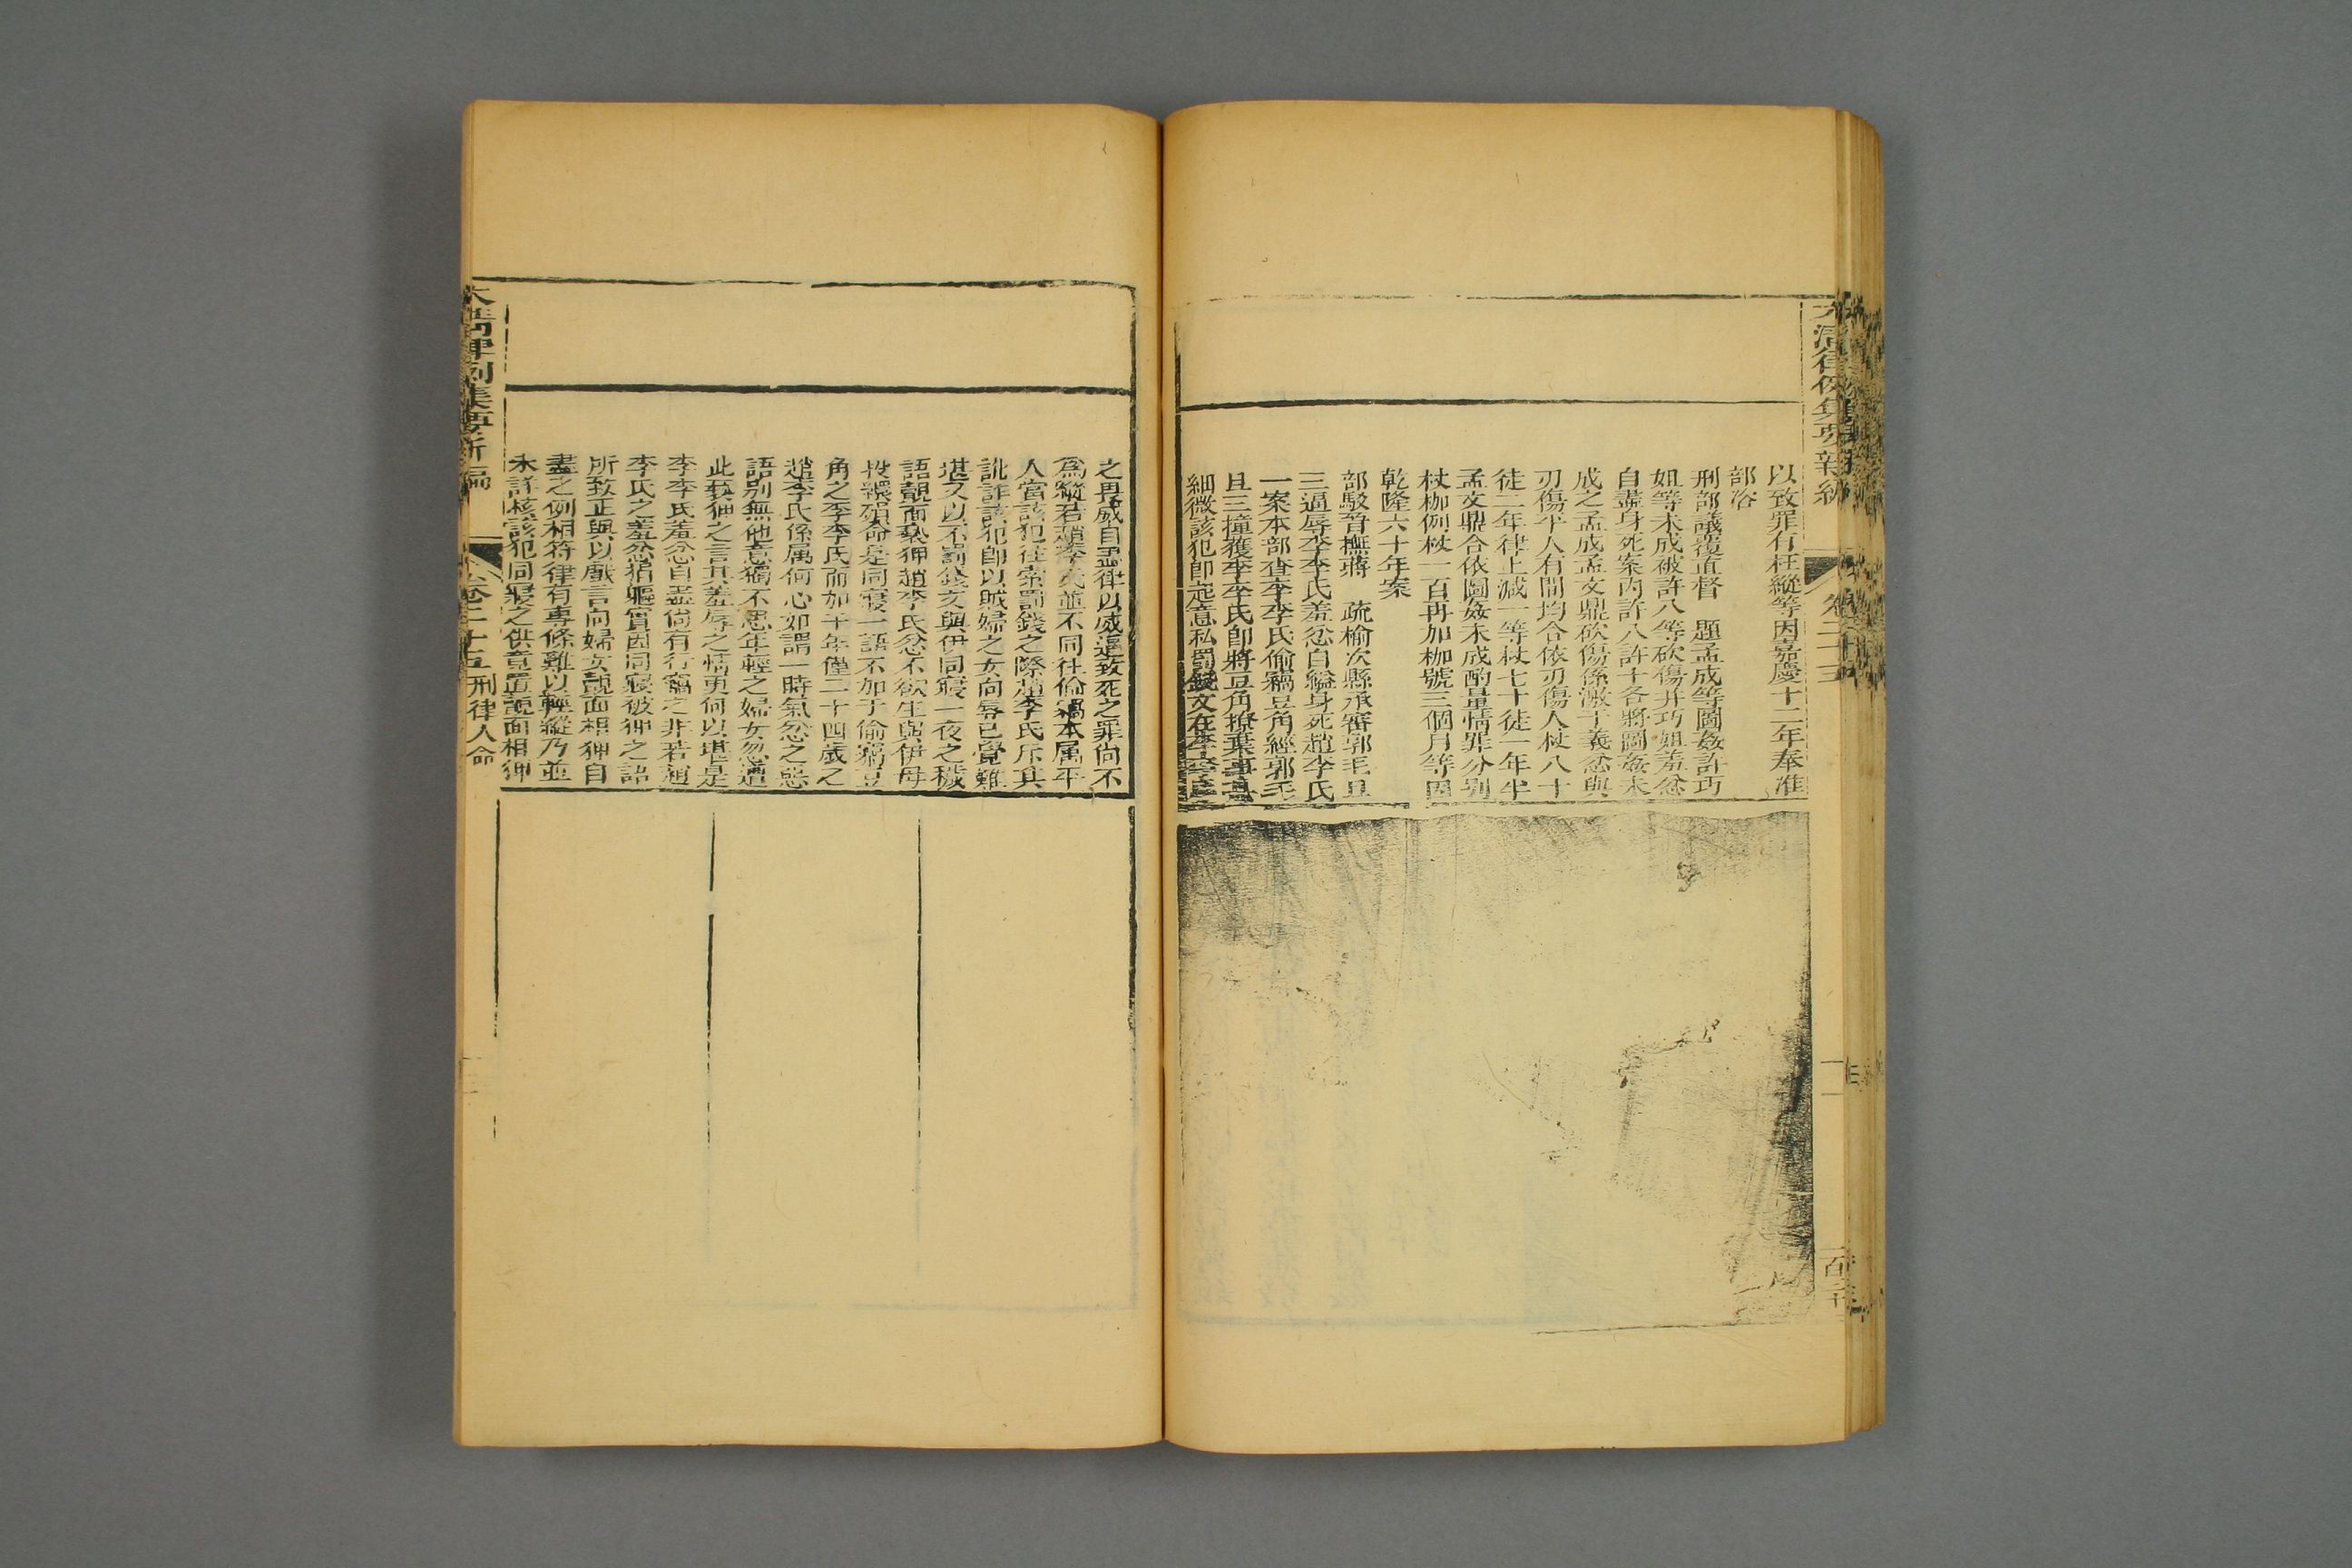 以致罪有枉縱等因嘉慶十二年奉准
部咨
刑部議覆直督　題孟成等圖姦許巧
姐等未成被許八等砍傷并巧姐羞忿
自盡身死案內許八許十各將圖姦未
成之孟成孟文鼎砍傷係激于義忿與
刃傷平人有間均合依刃傷人杖八十
徒二年律上減一等杖七十徒一年半
孟文鼎合依圖姦未成酌量情罪分别
杖枷例杖一百再加枷號三個月等因
乾隆六十年案
部駁晉撫蔣　疏榆次縣承審郭毛且
三逼辱李李氏羞忿自縊身死趙李氏
一案本部查李李氏偷竊豆角經郭毛
且三撞獲李李氏即將豆角撩棄事甚
細微該犯即起意私罰錢文在李李氏
之毋威自盡律以威逼致死之罪尚不
為縱若趙李氏並不同往偷竊本属平
人當該犯往索罰錢之際趙李氏斥其
訛詐該犯即以賊婦之女向辱已覺難
堪又以不罰錢文與伊同寢一夜之穢
語靦面褻狎趙李氏忿不欲生與伊母
投繯殞命是同寢一語不加于偷竊豆
角之李李氏而加于年僅二十四歲之
趙李氏係属何心如謂一時氣忿之惡
語别無他意獨不思年輕之婦女忽遭
此褻狎之言其羞辱之情更何以堪是
李李氏羞忿自盡尚有行竊之非若趙
李氏之羞忿捐軀實因同寢被狎之語
所致正與以戲言向婦女靦面相狎自
盡之例相符律有專條難以輕縱乃並
未詳核該犯同寢之供竟置靦面相狎
大清律例集要新編
卷二十五
刑律人命